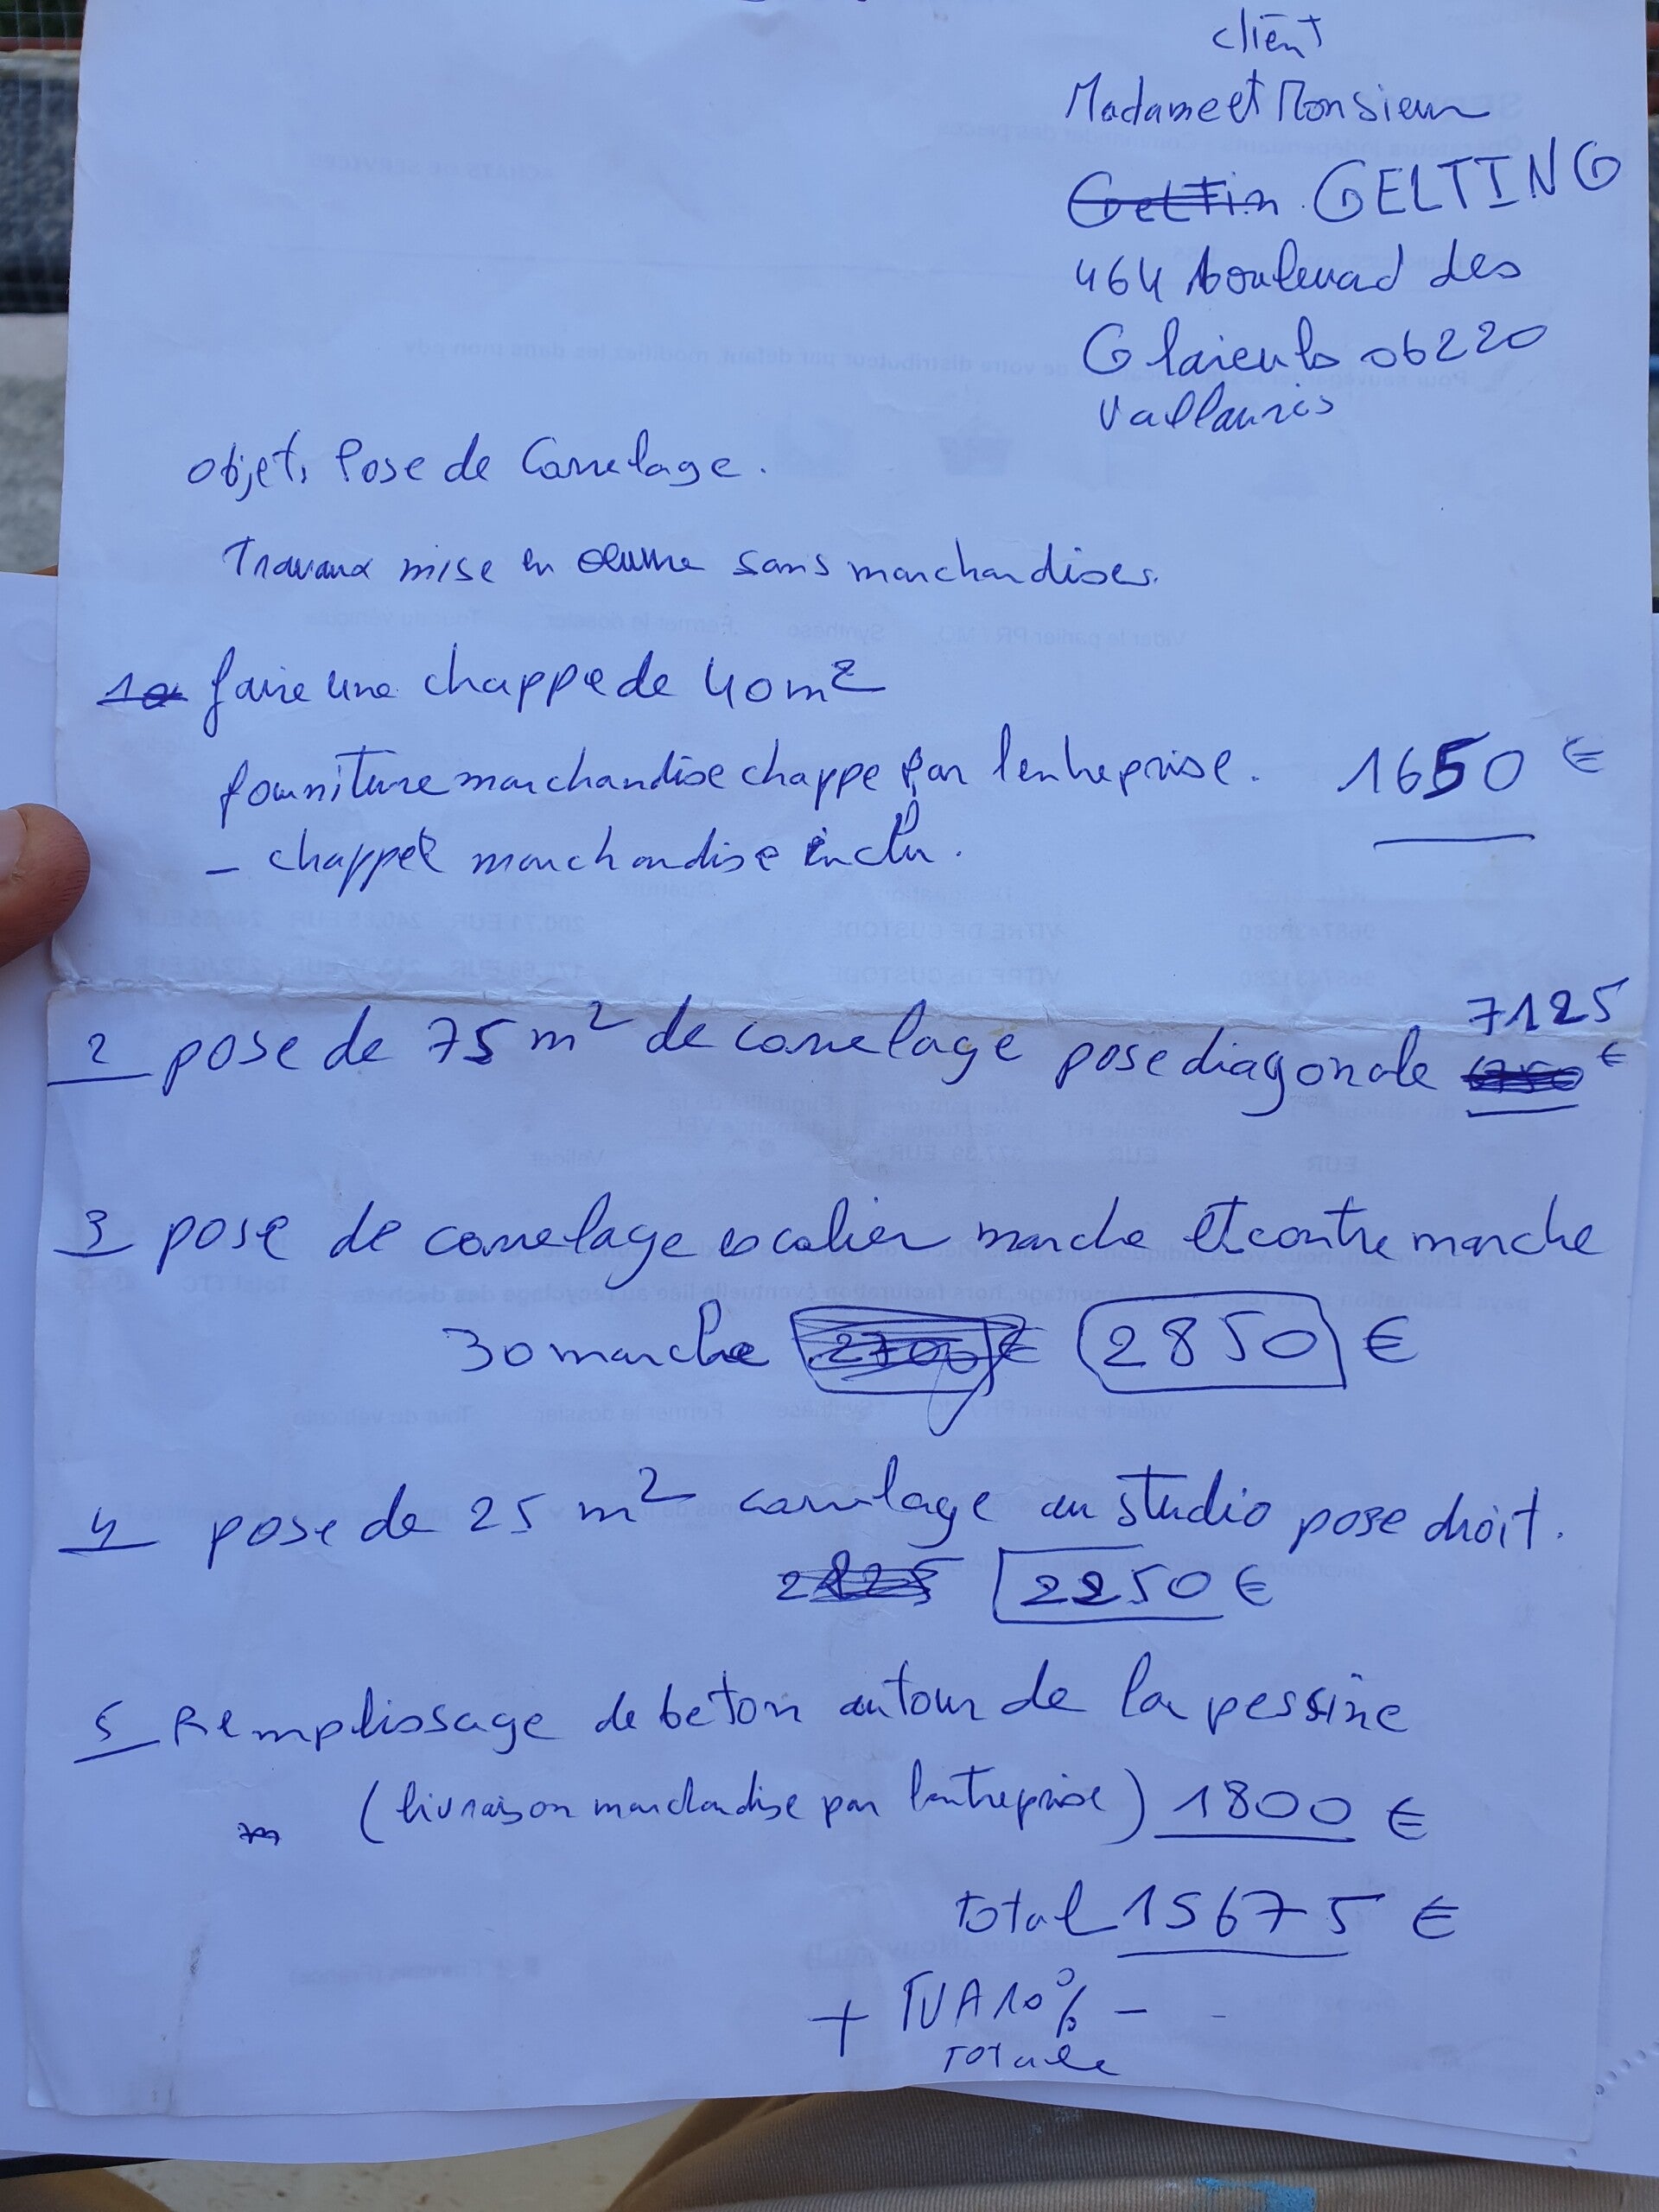 client
Madame et Monsieur
Geltin GELTING
464 boulevard des
Glaieuls 06220
Vallauris
Objet, Pose de Carrelage.
Travaux mise en œuvre sans marchandises.
1 faire une chappe de 40 m²
fourniture marchandise chappe par l'entreprise. 1650 €
- chappe marchandise inclu.
2 pose de 75 m² de carrelage pose diagonale 7125 €
3 pose de carrelage escalier marche et contre marche
30 marche 2700 € 2850 €
4 pose de 25 m² carrelage au studio pose droit.
2250 €
5 Remplissage de beton autour de la pessine
(livraison marchandise par l'entreprise) 1800 €
total 15675 €
+ TVA 10% -
Totale